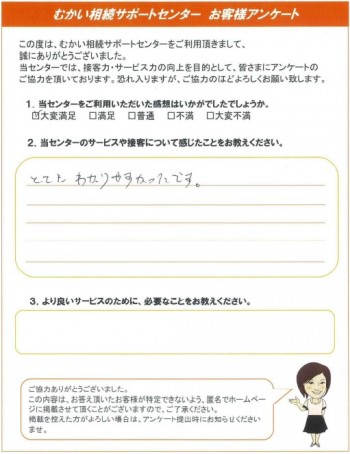 むかい相続サポートセンター お客様アンケート
この度は、むかい相続サポートセンターをご利用頂きまして、
誠にありがとうございました。
当センターでは、接客力・サービス力の向上を目的として、皆さまにアンケートの
ご協力を頂いております。恐れ入りますが、ご協力のほどよろしくお願い致します。
1．当センターをご利用いただいた感想はいかがでしたでしょうか。
☑大変満足 □満足 □普通 □不満 □大変不満
2．当センターのサービスや接客について感じたことをお教えください。
とても わかりやすかったです。
3．より良いサービスのために、必要なことをお教えください。
ご協力ありがとうございました。
この内容は、お答え頂いたお客様が特定できないよう、匿名でホームペー
ジに掲載させて頂くことがございますので、ご了承ください。
掲載を控えた方がよろしい場合は、アンケート提出時にお知らせください
ませ。